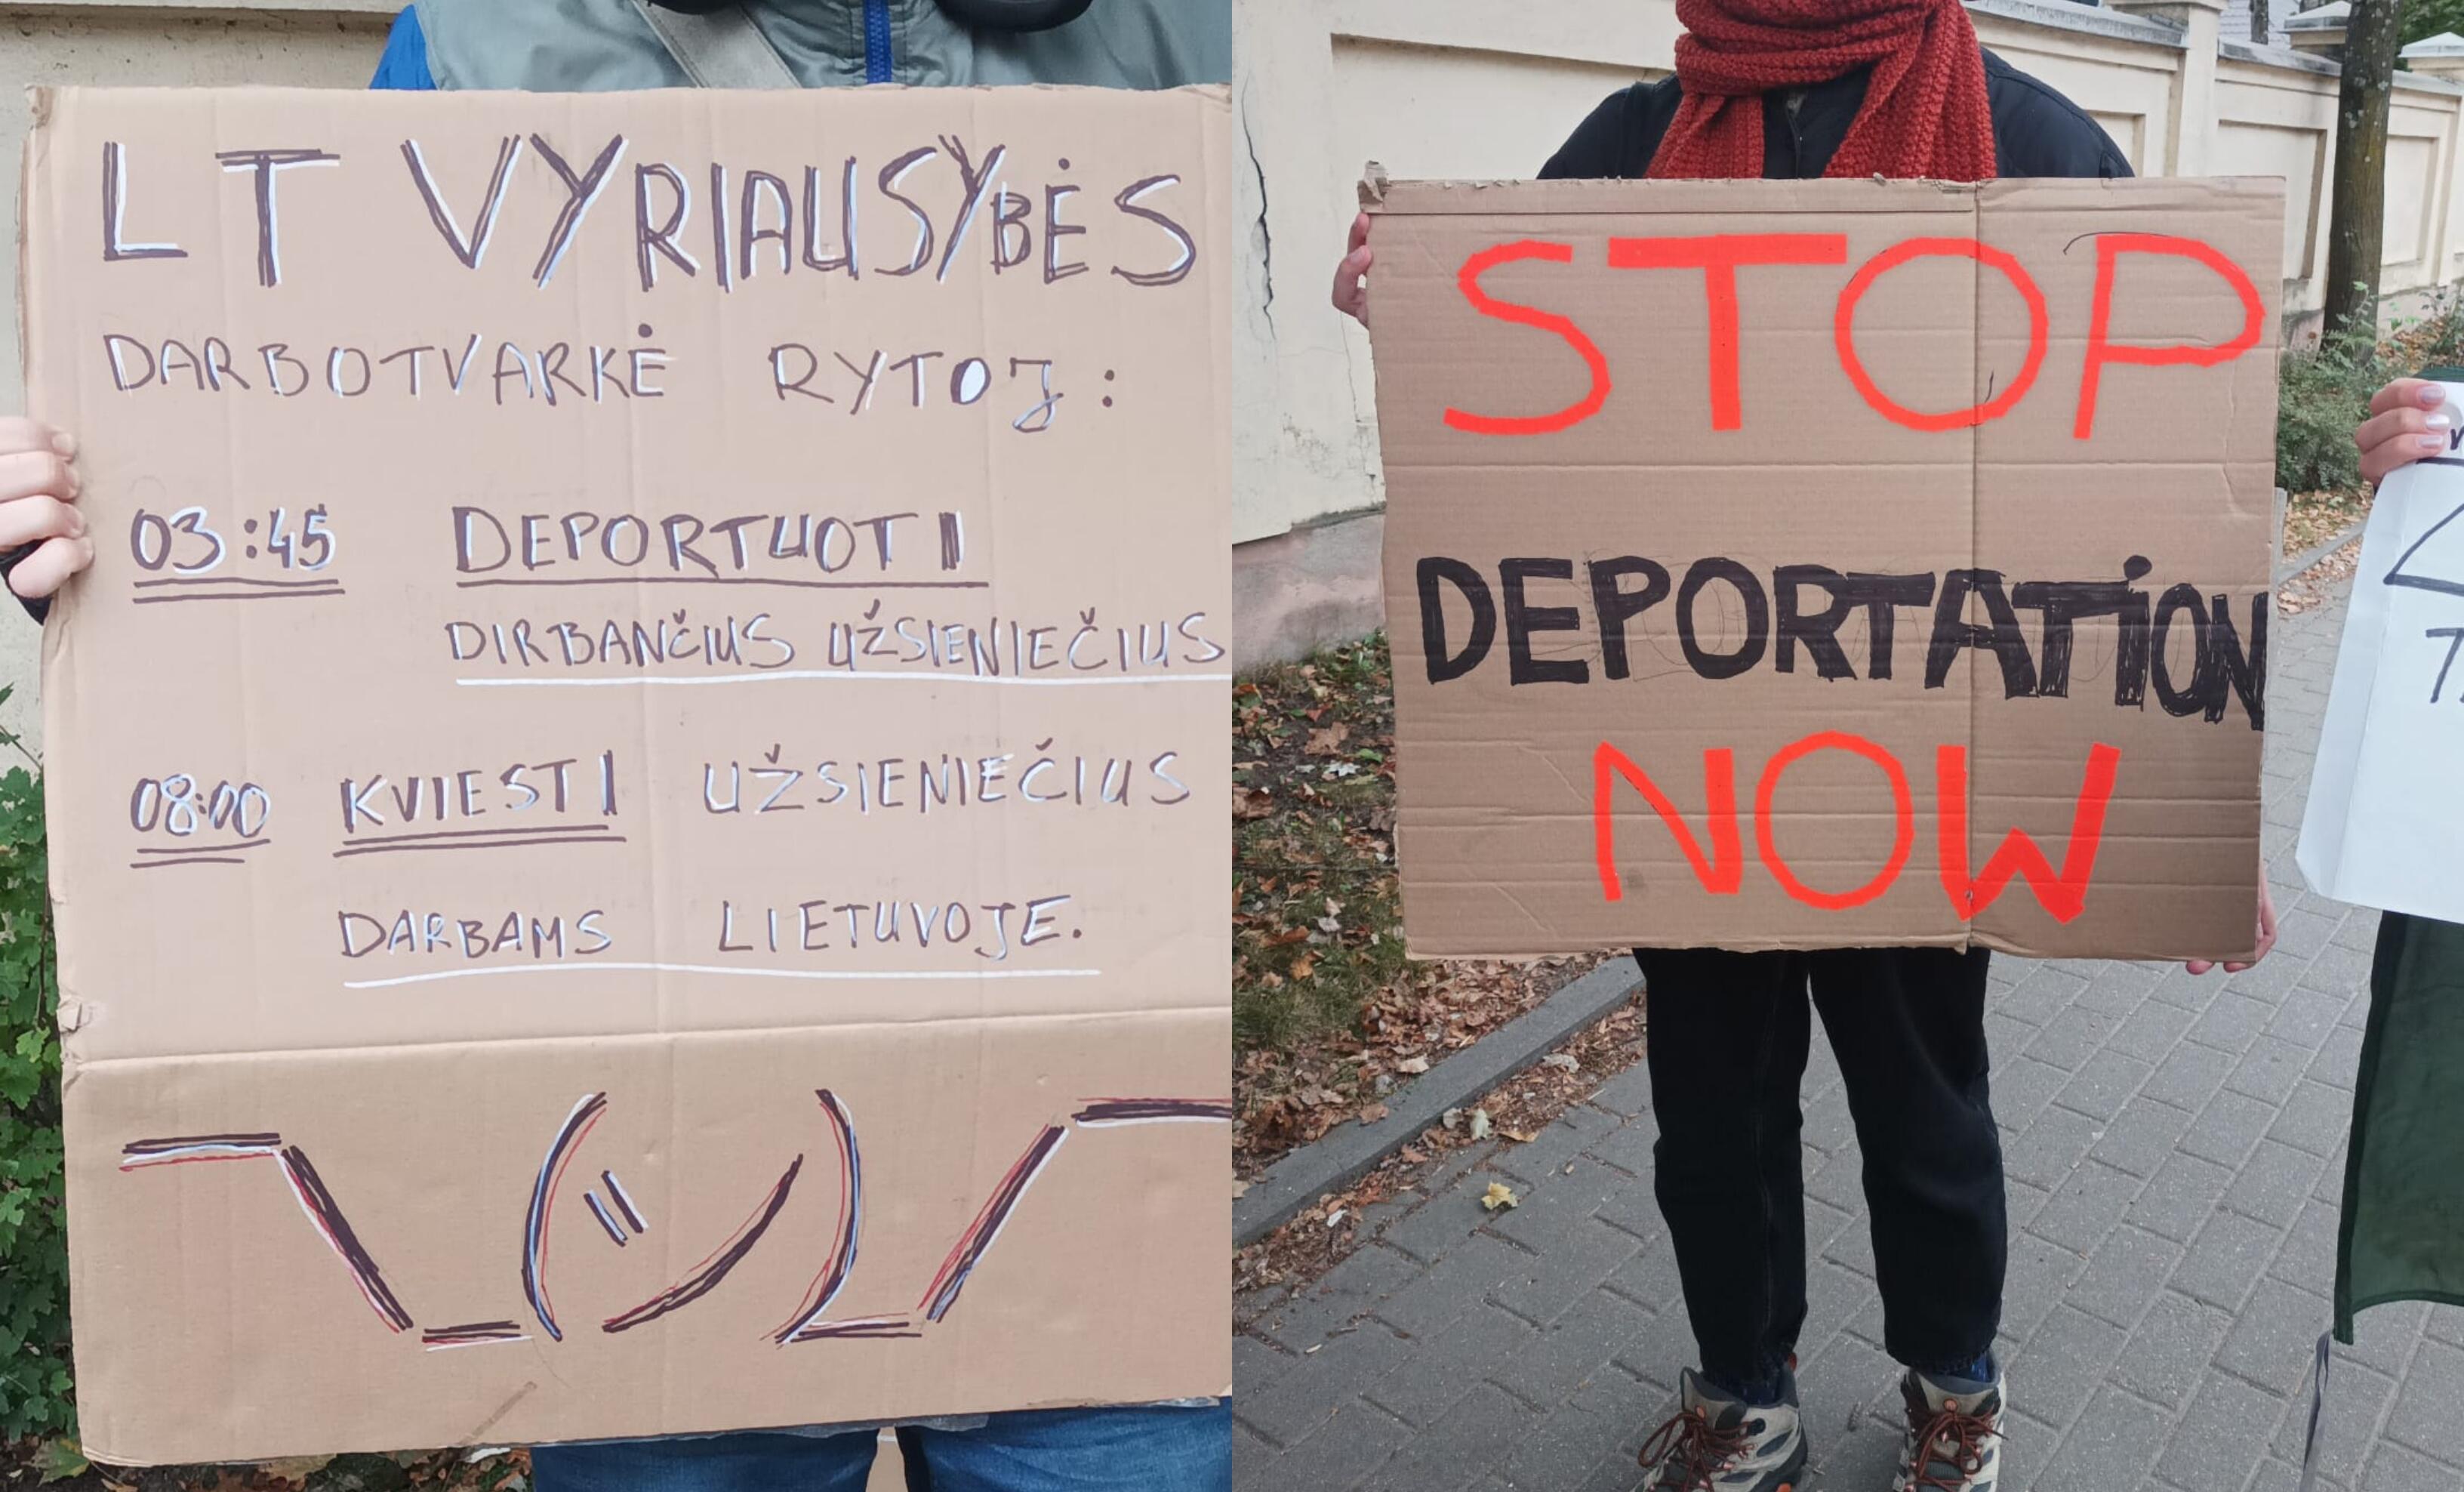 LT VYRIAUSYBĖS
DARBOTVARKĖ RYTOJ:
03:45 DEPORTUOTI
DIRBANČIUS UŽSIENIEČIUS
08:00 KVIESTI UŽSIENIEČIUS
DARBAMS LIETUVOJE.
¯\_(ツ)_/¯
STOP
DEPORTATION
NOW